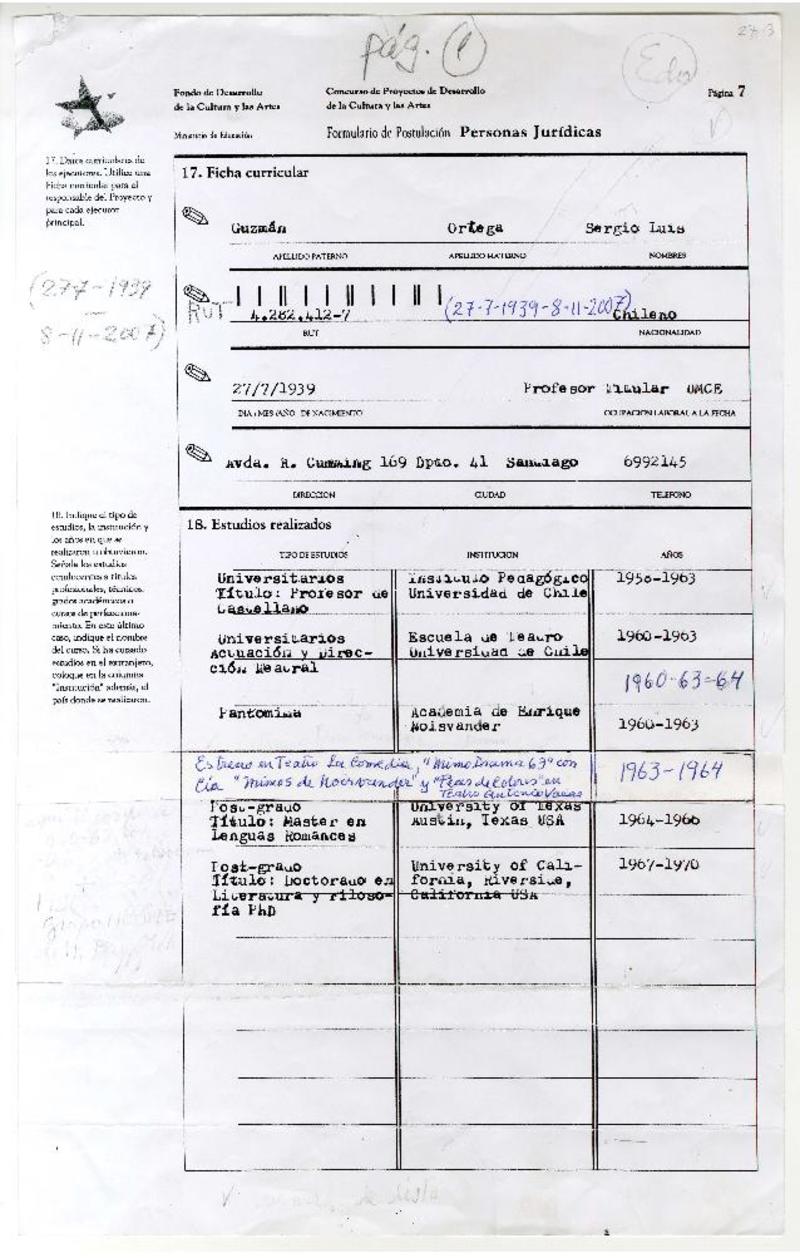 pág. 1
27-3
Fondo de Desarrollo
de la Cultura y las Artes
Ministerio de Educación
Concurso de Proyectos de Desarrollo
de la Cultura y las Artes
Formulario de Postulación Personas Jurídicas
Página 7
17. Datos curriculares de
los ejecutores. Utilice una
Ficha curricular para el
responsable del Proyecto y
para cada ejecutor
principal.
17. Ficha curricular
Guzmán Ortega Sergio Luis
APELLIDO PATERNO APELLIDO MATERNO NOMBRES
(27-7-1939
–
8-11-2007)
RUT 4.282.412-7 (27-7-1939-8-11-2007) Chileno
RUT NACIONALIDAD
27/7/1939 Profesor Titular UMCE
DIA / MES /AÑO DE NACIMIENTO OCUPACION LABORAL A LA FECHA
Avda. R. Cumming 169 Dpto. 41 Santiago 6992145
DIRECCION CIUDAD TELEFONO
18. Indique el tipo de
estudios, la institución y
los años en que se
realizaron u obtuvieron.
Señale los estudios
conducentes a títulos
profesionales, técnicos,
grados académicos o
cursos de perfecciona-
miento. En este último
caso, indique el nombre
del curso. Si ha cursado
estudios en el extranjero,
coloque en la columna
"Institución" además, el
país donde se realizaron.
18. Estudios realizados
TIPO DE ESTUDIOS INSTITUCION AÑOS
Universitarios Instituto Pedagógico 1958-1963
Título: Profesor de Universidad de Chile
Castellano
Universitarios Escuela de Teatro 1960-1963
Actuación y Direc- Universidad de Chile
ción Teatral
1960-63=64
Pantomima Academia de Enrique
Noisvander 1960-1963
Estreno en Teatro La Comedia, "Mimo Drama 63" con
Cía "Mimos de Noisvander" y "Feas de Colores" en 1963-1964
Teatro Antonio Varas
Post-grado University of Texas
Título: Master en Austin, Texas USA 1964-1966
Lenguas Romances
Post-grado University of Cali- 1967-1970
Título: Doctorado en fornia, Riverside,
Literatura y Filoso- California USA
fía PhD